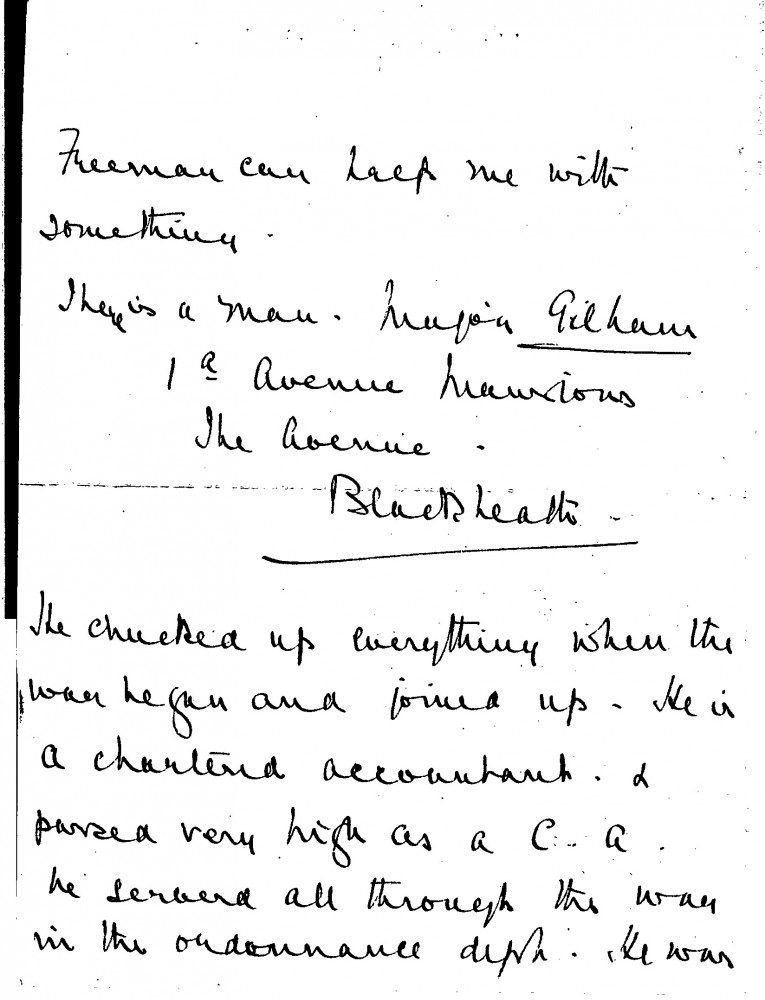 Freeman can help me with
something.
There is a man. Major Gilham
1a Avenue Mansions
The Avenue.
Blackheath -
He chucked up everything when the
war began and joined up - He is
a chartered accountant. &
passed very high as a C. A.
he served all through the war
in the ordonnance dept. He was